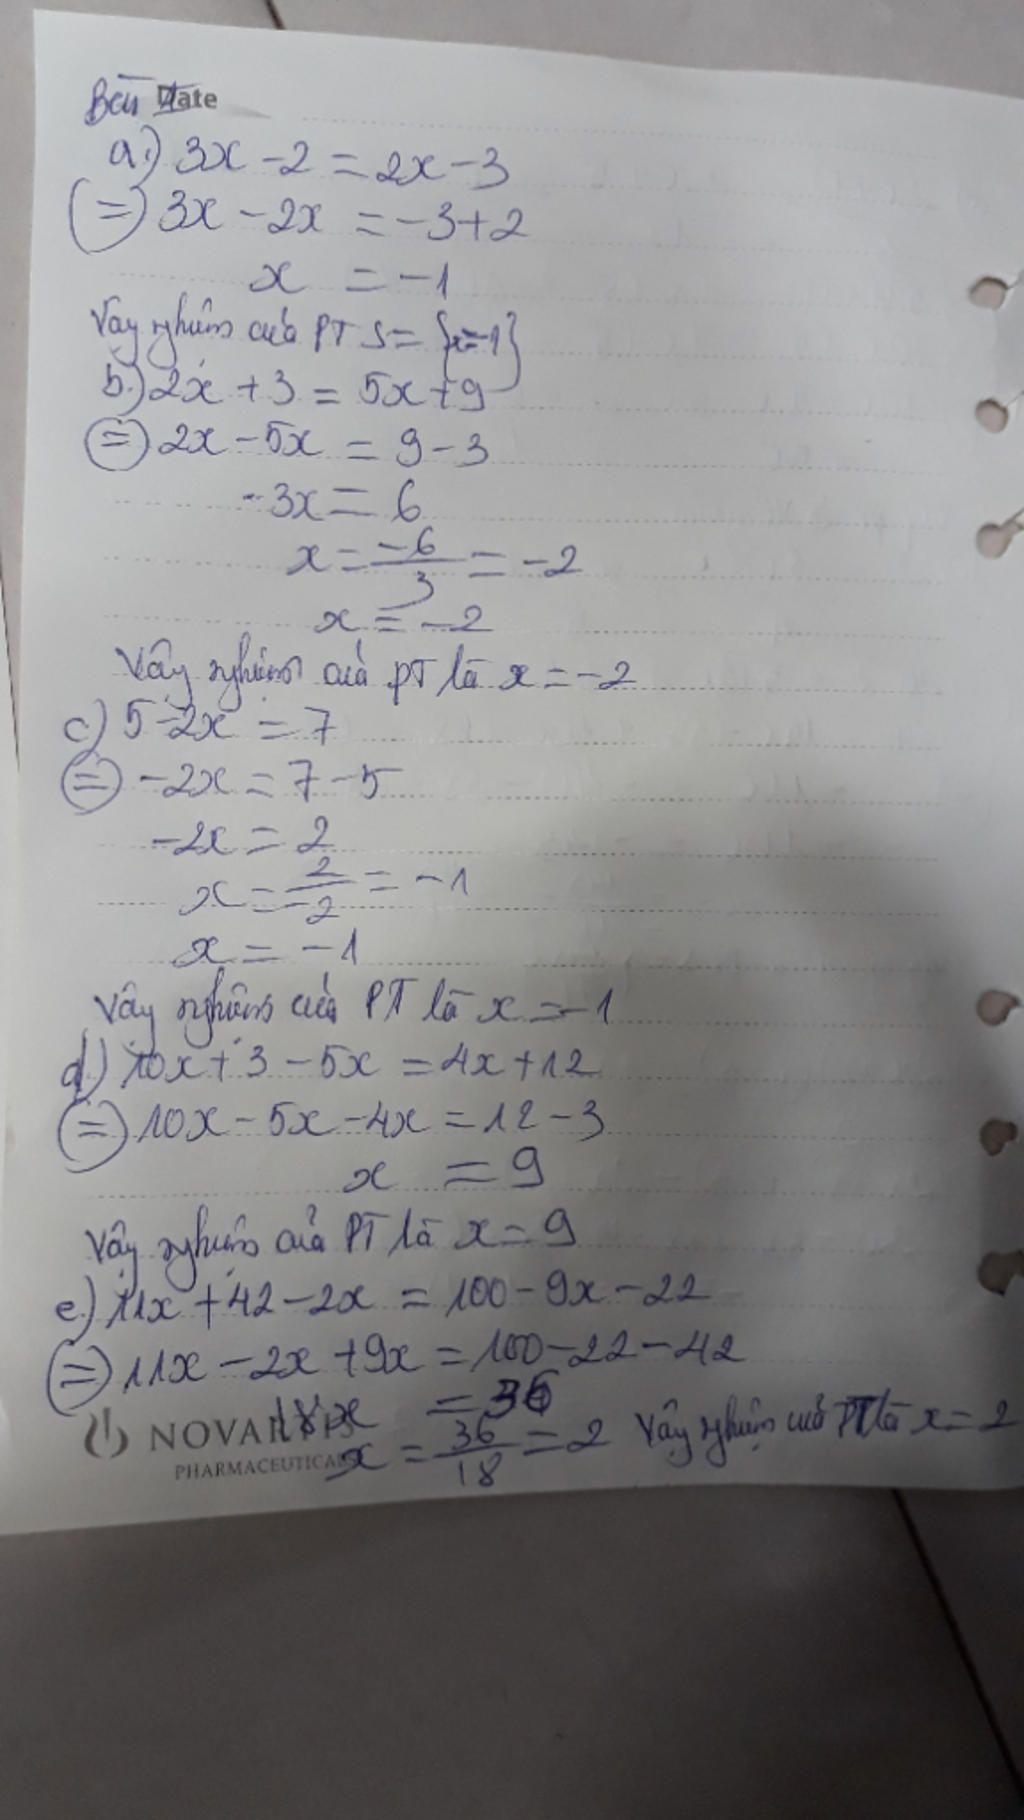 Bài 1
Date
a.) 3x - 2 = 2x - 3
(=) 3x - 2x = -3 + 2
x = -1
Vậy nghiệm của PT S = {x=-1}
b.) 2x + 3 = 5x + 9
(=) 2x - 5x = 9 - 3
-3x = 6
x = -6/3 = -2
x = -2
Vậy nghiệm của PT là x = -2
c) 5 - 2x = 7
(=) -2x = 7 - 5
-2x = 2
x = 2/-2 = -1
x = -1
Vậy nghiệm của PT là x = -1
d.) 10x + 3 - 5x = 4x + 12
(=) 10x - 5x - 4x = 12 - 3
x = 9
Vậy nghiệm của PT là x = 9
e.) 11x + 42 - 2x = 100 - 9x - 22
(=) 11x - 2x + 9x = 100 - 22 - 42
18x = 36
NOVARTIS
x = 36/18 = 2 Vậy nghiệm của PT là x = 2
PHARMACEUTICALS